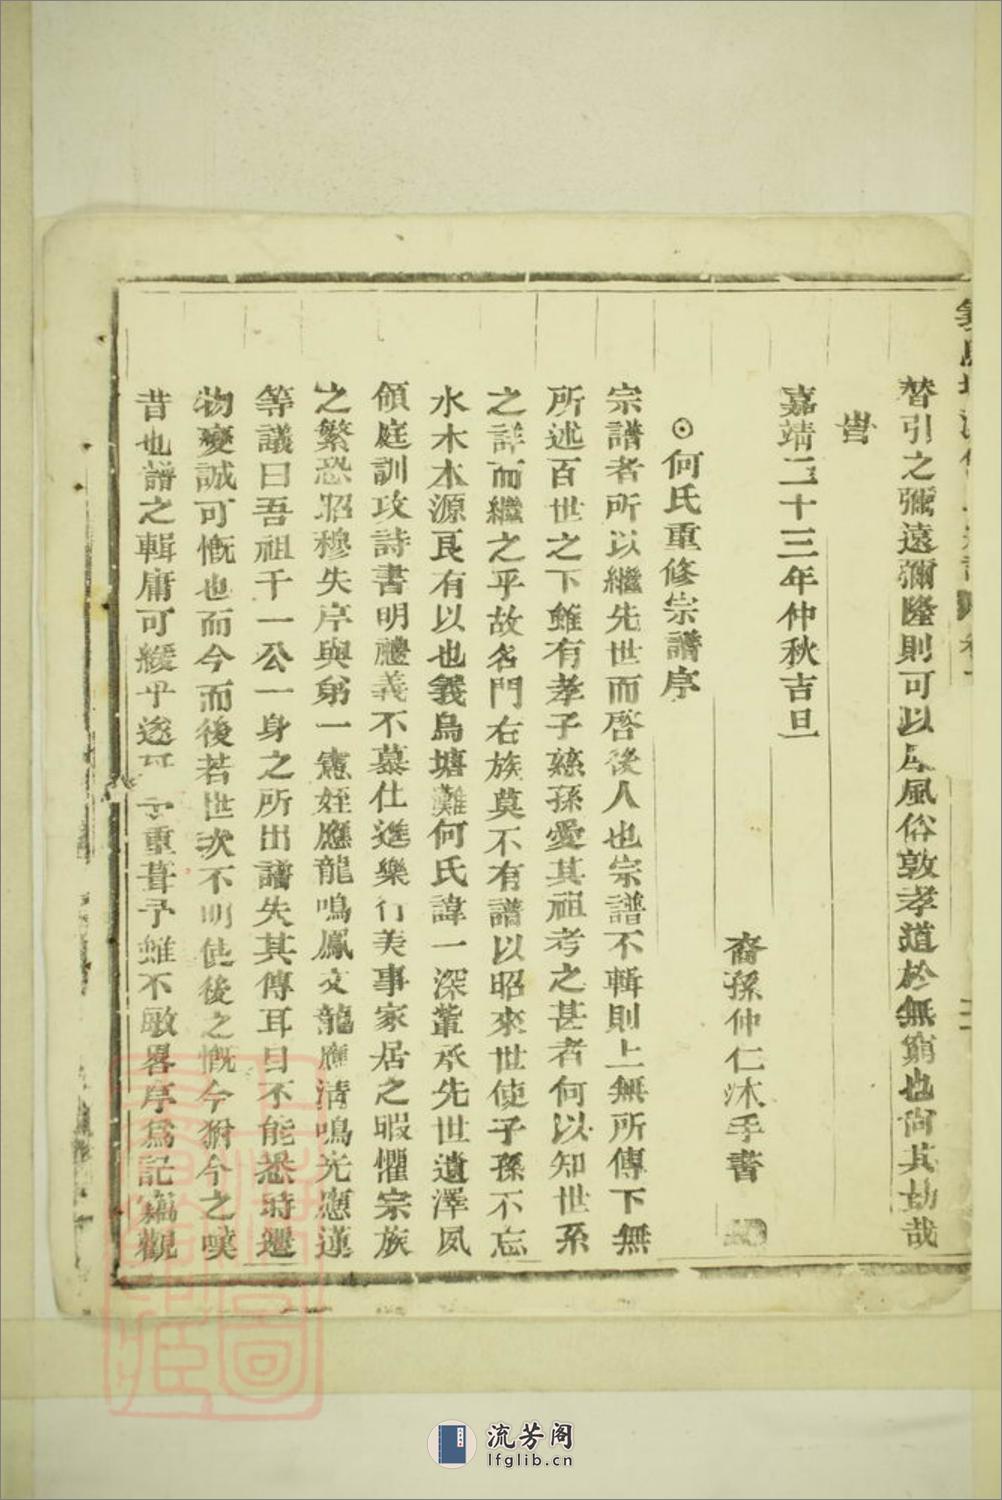 替引之彌遠彌隆則可以厚風俗敦孝道於無窮也尙其勗哉
嘗
嘉靖二十三年仲秋吉旦
裔孫仲仁沐手書
⊙何氏重修宗譜序
宗譜者所以繼先世而啓後人也宗譜不輯則上無所傳下無
所述百世之下雖有孝子慈孫愛其祖考之甚者何以知世系
之詳而繼之乎故名門右族莫不有譜以昭來世使子孫不忘
水木本源良有以也義烏塘灘何氏諱一深輩承先世遺澤夙
領庭訓攻詩書明禮義不慕仕進樂行美事家居之暇懼宗族
之繁恐昭穆失序與弟一憲姪應龍鳴鳳文龍應清鳴光應蓮
等議曰吾祖千一公一身之所出譜失其傳耳目不能悉時遷
物變誠可慨也而今而後若世次不明使後之慨今猶今之嘆
昔也譜之輯庸可緩乎遂 重葺予雖不敏畧序爲記竊觀
流芳阁
lfglib.cn